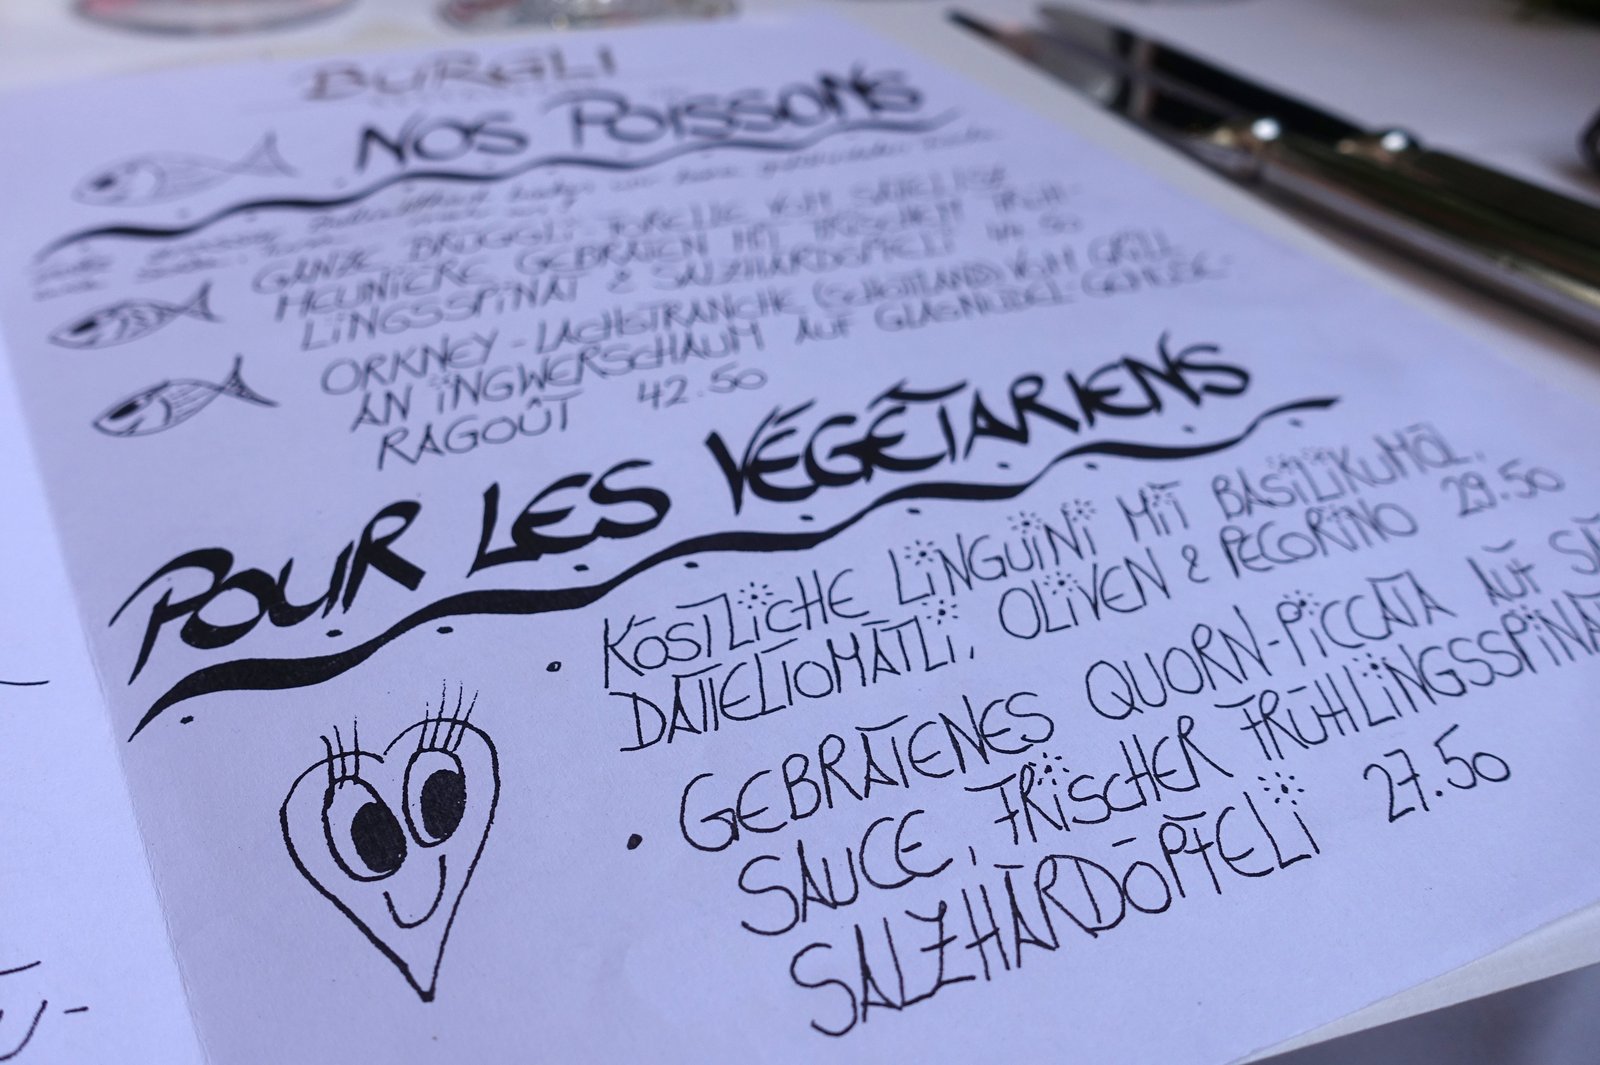 BURGLI
NOS POISSONS
GANZE BRÜGGLI-FORELLE VOM SATTEL/SZ
MEUNIÈRE GEBRATEN MIT FRISCHEM FRÜH-
LINGSSPINAT & SALZHÄRDÖPFELI
ORKNEY-LACHSTRANCHE (SCHOTTLAND) VOM GRILL
AN INGWERSCHAUM AUF GLASNUDEL-GEMÜSE-
RAGOÛT 42.50
POUR LES VÉGÉTARIENS
• KÖSTLICHE LINGUINI MIT BASILIKUMÖL,
DATTELTOMÄTLI, OLIVEN & PECORINO 29.50
• GEBRATENES QUORN-PICCATA AUF
SAUCE, FRISCHER FRÜHLINGSSPINAT
SALZHÄRDÖPFELI 27.50